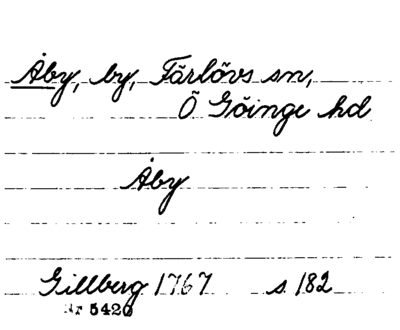 Åby, by, Färlövs sn,
Ö Göinge hd
Åby
Gillberg 1767 s 182
Nr 5420